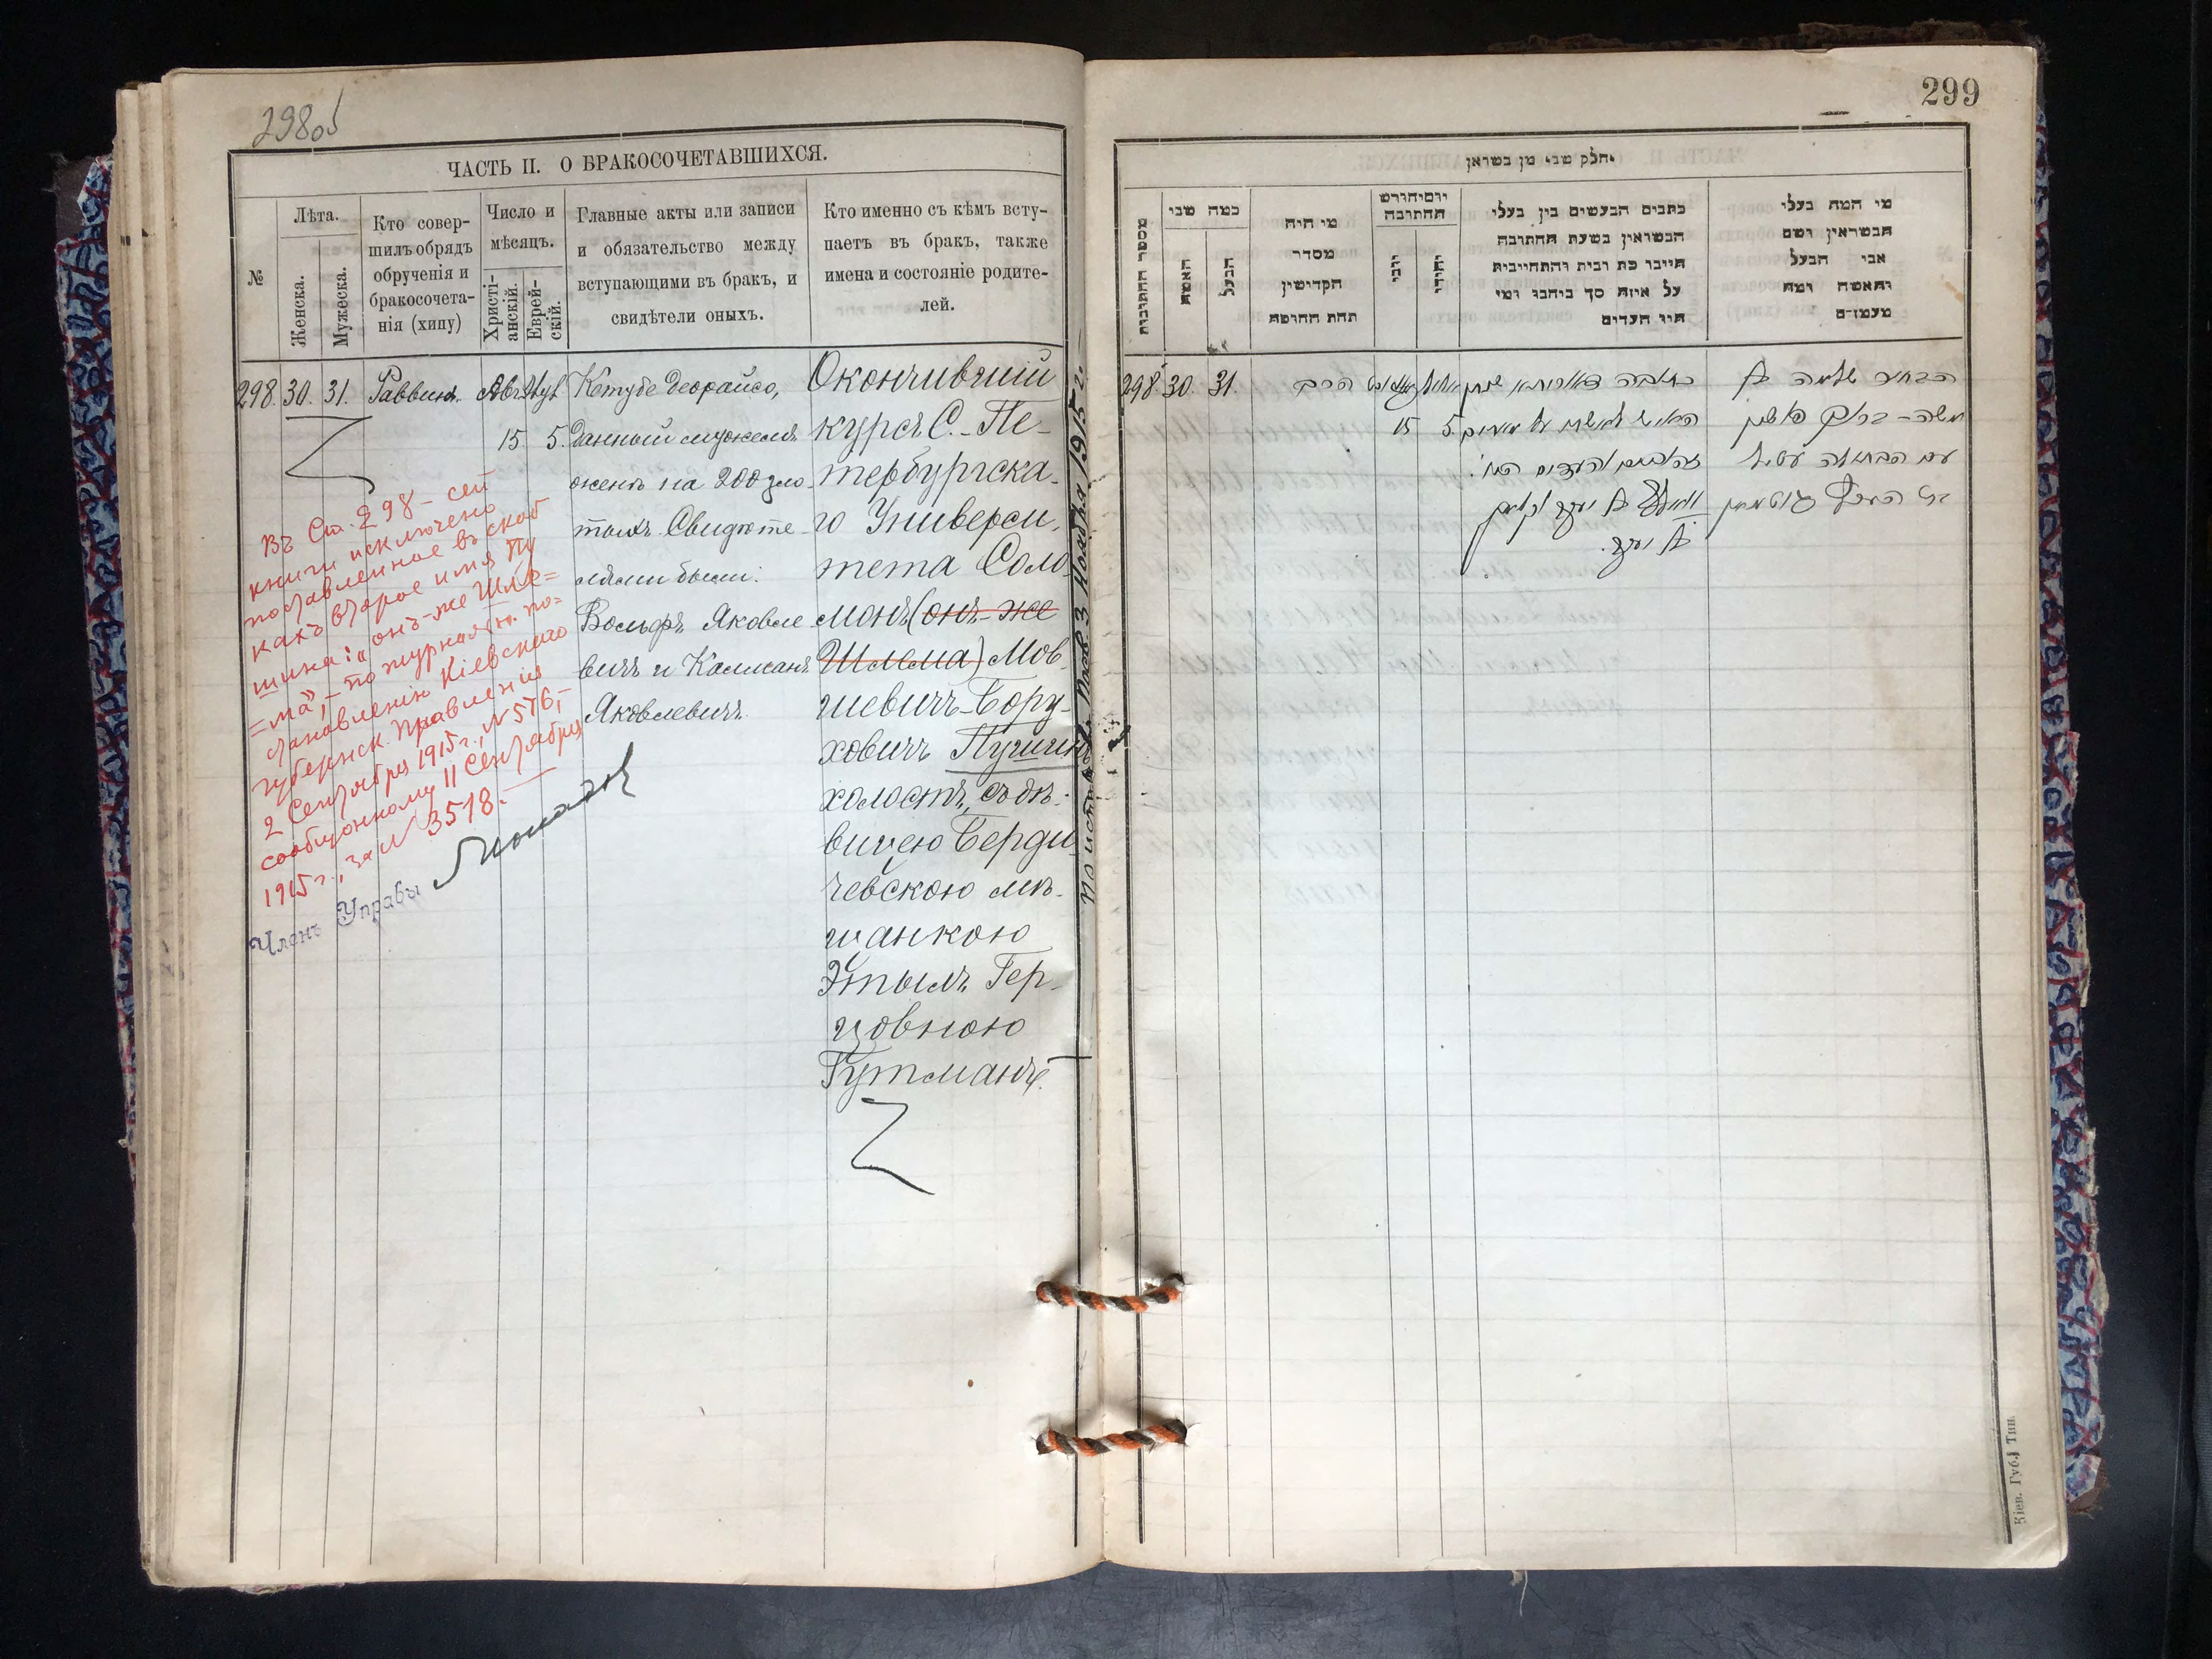 298об
ЧАСТЬ II. О БРАКОСОЧЕТАВШИХСЯ.
№
Лѣта.
Женска.
Мужеска.
Кто совер-
шилъ обрядъ
обрученія и
бракосочета-
нія (хипу)
Число и
мѣсяцъ.
Христі-
анскій.
Еврей-
скій.
Главные акты или записи
и обязательство между
вступающими въ бракъ, и
свидѣтели оныхъ.
Кто именно съ кѣмъ всту-
паетъ въ бракъ, также
имена и состояніе родите-
лей.
298. 30. 31. Раввинъ. Авг.
15 5.
Кетубе Деорайсо,
данный мужемъ
женѣ на 200 зло-
тыхъ. Свидѣте-
лями были:
Вольфъ Яковле
вичъ и Калманъ
Яковлевичъ
Окончившій
курсъ С.-Пе-
тербургска-
го Универси-
тета Соло-
монъ (онъ-же
Шлема) Мов-
шевичъ-Бору-
ховичъ Пушинъ
холостъ, съ дѣ-
вицею Берди-
чевскою мѣ-
щанкою
Этылъ Гер-
цовною
Гутманъ.
Въ Ст. 298 - сей
книги исключено
поставленное въ скоб
кахъ второе имя Пу
шина: „онъ-же Шле=
=ма", - по журнальн. по-
становленію Кіевскаго
Губернск. Правленія
2 Сентября 1915 г., № 576, -
сообщенному 11 Сентября
1915 г., за № 3518. -
Членъ Управы
299
חלק שני מן נשואין
מספר החתונות
כמה שני
האשה
הבעל
מי היה
מסדר
הקדושין
תחת החופה
יום וחודש
החתונה
יוני
יהודי
כתבים הנעשים בין בעלי
הנשואין בשעת החתונה
חייבו כת ובית והתחייבות
על איזה סך ביחבו ומי
היו העדים
מי המה בעלי
הנשואין ושם
אבי הבעל
והאשה ומה
מעמדם
298 30. 31. הרב
15 5.
כתובה דאורייתא
הבחור שלמה ב׳
משה-ברוך פושין
עם הבתולה עטיל
בת הערץ גוטמאן
Кіев. Губ. Тип.